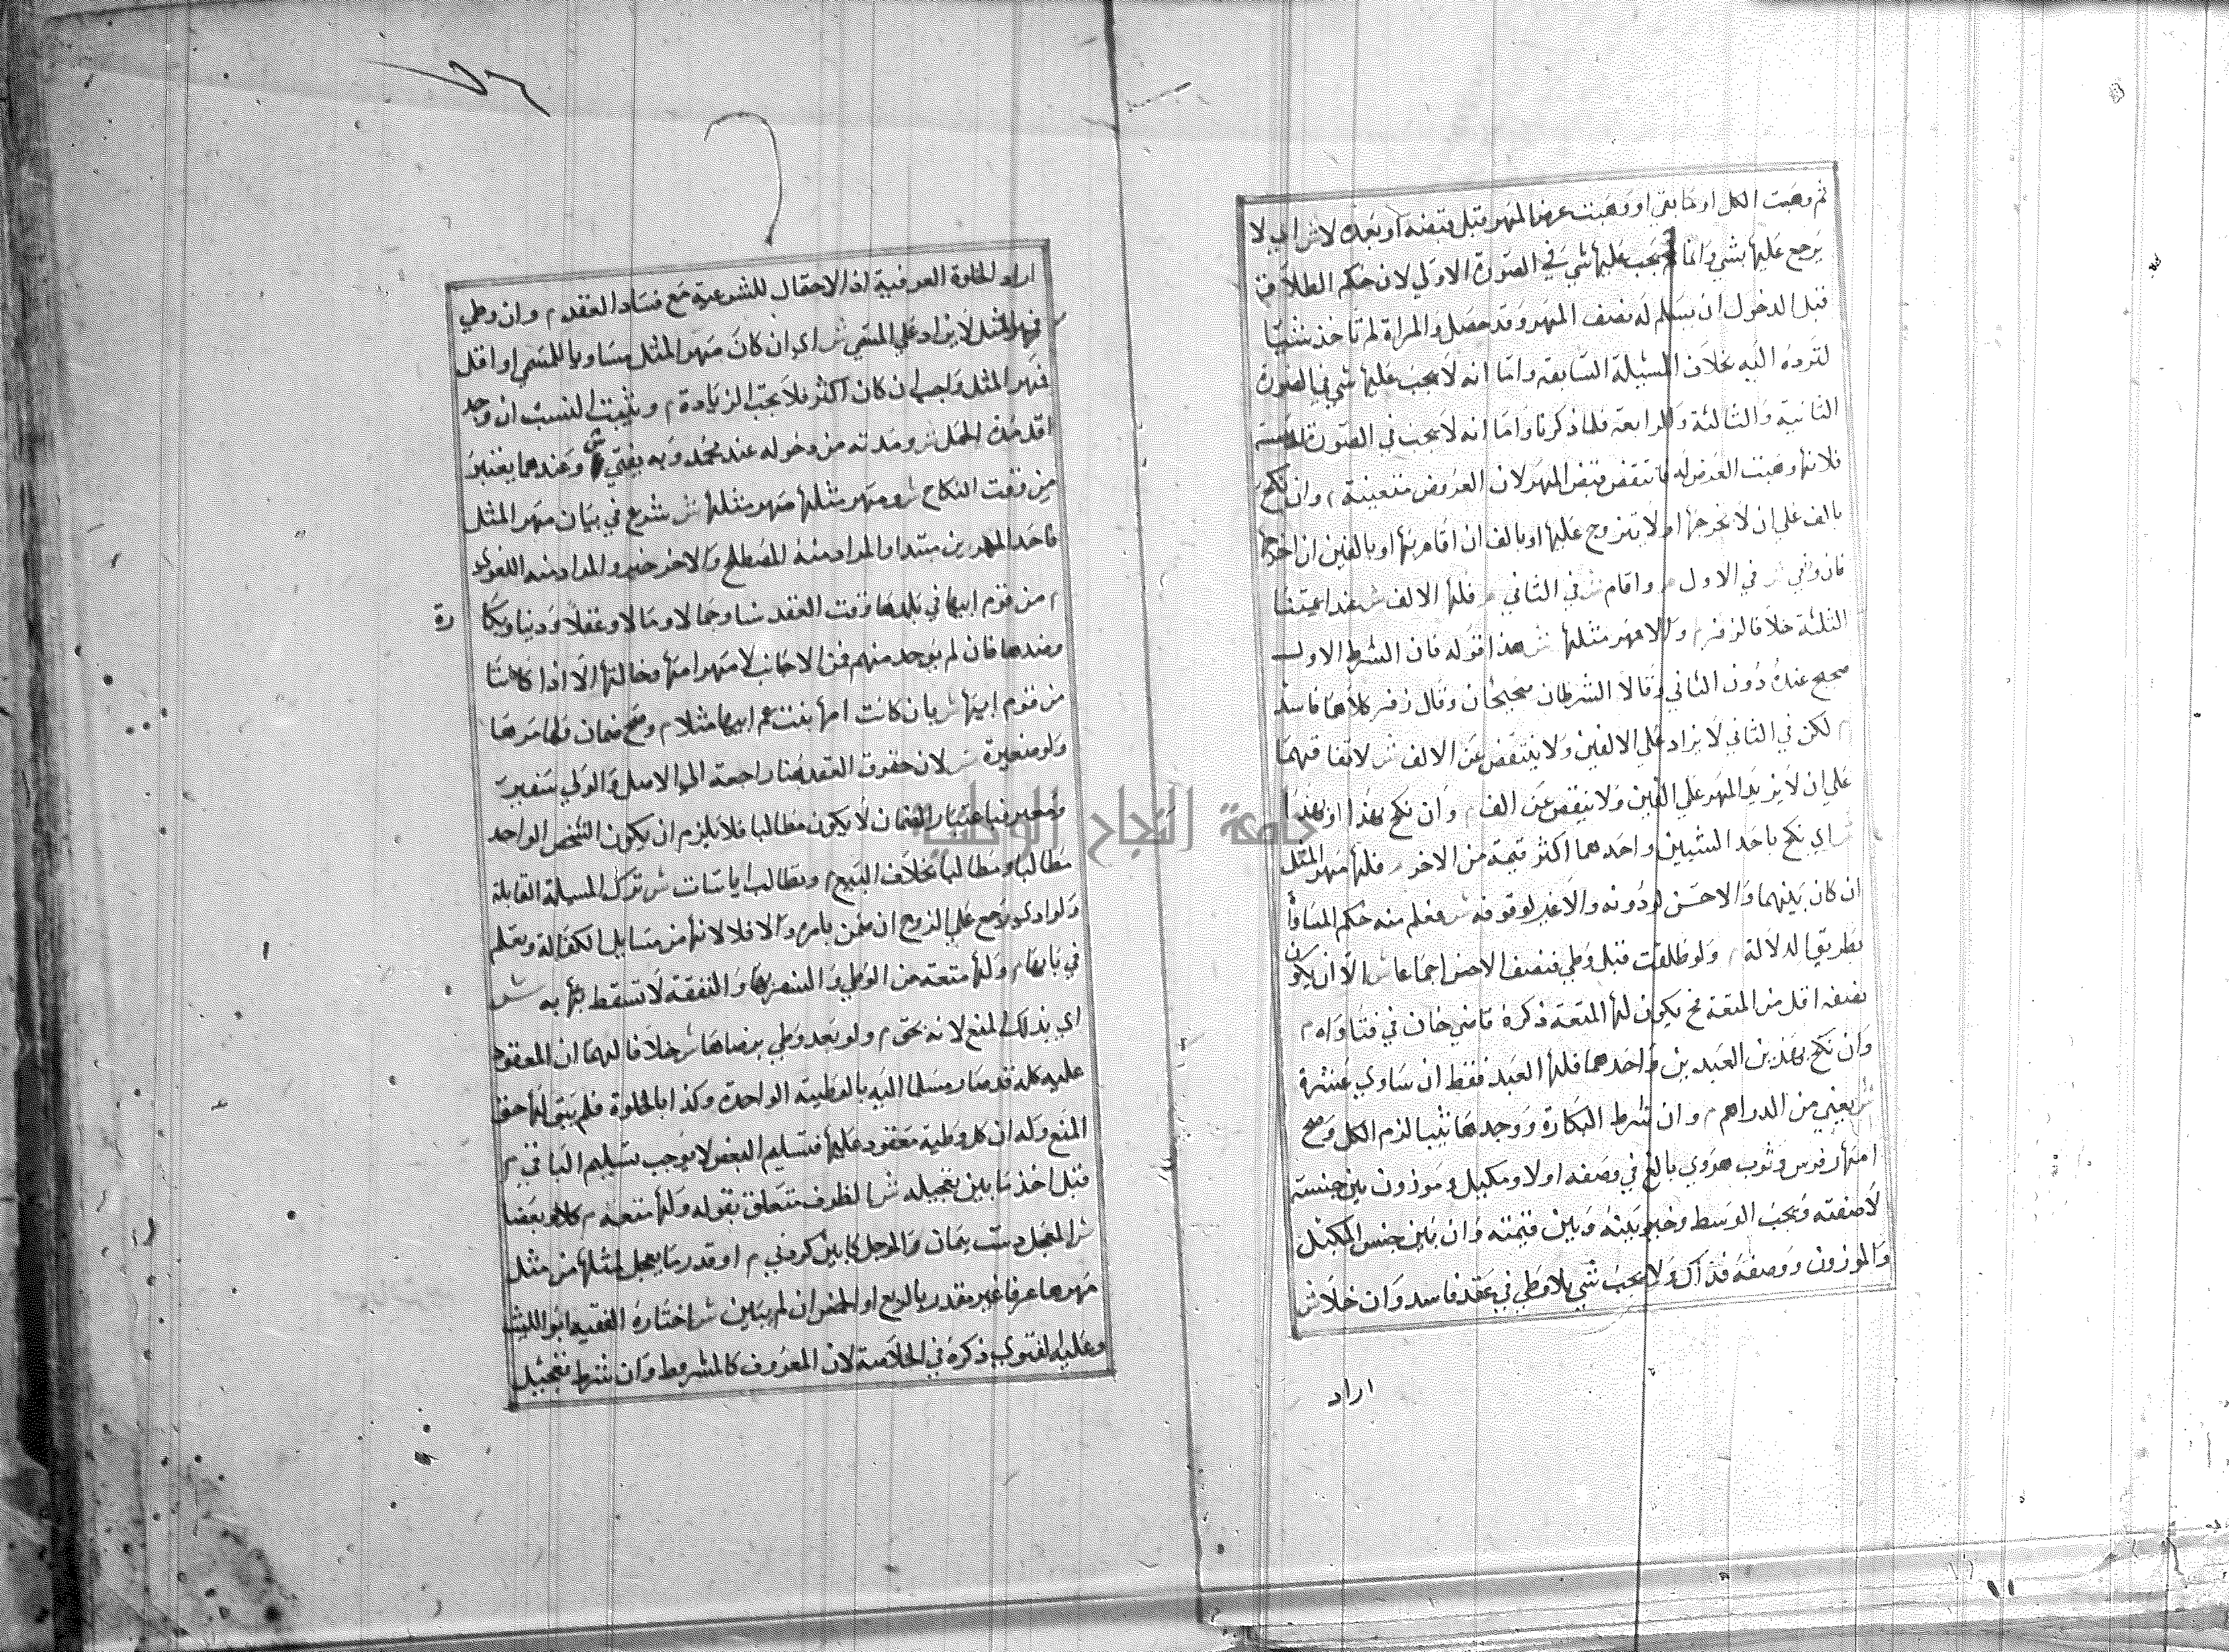 ثم وهبت الكل او ما بقي او وهبت عرض المهر قبل قبضه او بعده لا ش اي لا
يرجع عليها بشي وانما لم يجب عليها شي في الصورة الاولي لان حكم الطلاق
قبل الدخول ان يسلم له نصف المهر وقد حصل والمراة لم تاخذ شيئا
لترده اليه بخلاف المسيلة السابقة واما انه لا يجب عليها شي في الصورة
الثانية والثالثة والرابعة فلما ذكرنا واما انه لا يجب في الصورة الخامسة
فلانها وهبت العرض له فانتقض قبض المهر لان العروض متعينة م وان نكح
بالف علي ان لا يخرجها او لا يتزوج عليها او بالف ان اقام بها او بالفين ان اخرجها
فان وفي ش في الاول م واقام ش في الثاني م فلها الالف ش عند ايمتنا
الثلثة خلافا لزفر م والا مهر مثلها ش هذا قوله فان الشرط الاول
صحيح عنده دون الثاني وقالا الشرطان صحيحان وقال زفر كلاهما فاسد
م لكن في الثاني لا يزاد علي الالفين ولا ينتقض عن الالف ش لاتفاقهما
علي ان لا يزيد المهر علي الفين ولا ينقص عن الف م وان نكح بهذا او بهذا
ش اي نكح باحد الشيين واحدهما اكثر قيمة من الاخر م فلها مهر المثل
ان كان بينهما والاحسن لو دونه والاعز لو فوقه ش فعلم منه حكم المساواة
بطريق الدلالة م ولو طلقت قبل وطي فنصف الاخس اجماعا ش الا ان يكون
نصفه اقل من المتعة فح يكون لها المتعة ذكره قاضي خان في فتاواه م
وان نكح بهذين العبدين واحدهما حر فلها العبد فقط ان ساوي عشرة
ش يعني من الدراهم م وان شرط البكارة ووجدها ثيبا لزم الكل وصح
امهار فرس وثوب هروي بالغ في وصفه او لا ومكيل وموزون بين جنسه
لا صفته ويجب الوسط وخير بينه وبين قيمته وان بين جنس المكيل
والموزون ووصفه فذاك ولا يجب شي بلا وطي في عقد فاسد وان خلا ش
اراد
اراد الخلوة العرفية اذ لا احتمال للشرعية مع فساد العقد م وان وطي
فمهر المثل لا يزاد علي المسمي ش اي ان كان مهر المثل مساويا للمسمي او اقل
فمهر المثل واجب ان كان اكثر فلا يجب الزيادة م ويثبت النسب ان وجد
اقل مدة الحمل ش ومدته من دخوله عند محمد وبه يفتي ش وعندهما يعتبر
من وقت النكاح ش ومهر مثلها مهر مثلها ش شرع في بيان مهر المثل
فاحد المهرين مبتدا والمراد منه المصطلح والاخر خبر والمراد منه اللغوي
م من قوم ابيها في بلدها وقت العقد سنا وجمالا ومالا وعقلا ودينا وبكا
رة
وضدها فان لم يوجد منهم فمن الاجانب لا مهر امها وخالتها الا اذا كانتا
من قوم ابيها ش بان كانت امها بنت عم ابيها مثلا م وصح ضمان وليها مهرها
ولو صغيرة ش لان حقوق العقد هنا راجعة الي الاصل والولي سفير
ومعبر فباعتبار الضمان لا يكون مطالبا فلا يلزم ان يكون الشخص الواحد
مطالبا ومطالبا بخلاف البيع م وتطالب ايا شات ش ترك المسيلة القابلة
ولو ادي يرجع علي الزوج ان ضمن بامره والا فلا لانها من مسايل الكفالة ويعلم
في بابها م ولها منعه من الوطي والسفر بها والنفقة لا تسقط بها به ش
اي بذلك المنع لانه بحق م ولو بعد وطي برضاها ش خلافا لهما ان المعقود
عليه كله قد صار مسلما اليه بالوطية الواحدة وكذا بالخلوة فلم يبق لها حق
المنع وله ان كل وطية معقود عليها فتسليم البعض لا يوجب تسليم الباقي م
قبل اخذ ما بين تعجيله ش الظرف متعلق بقوله ولها منعه م كلا او بعضا
ش المعجل دست پيمان والموجل كابين كردني م او قدر ما يعجل لمثلها من مثل
مهرها عرفا غير مقدر بالربع او الخمس ان لم يبين ش اختاره الفقيه ابو الليث
وعليه الفتوي ذكره في الخلاصة لان المعروف كالمشروط وان شرط تعجيل
جامعة النجاح الوطنية